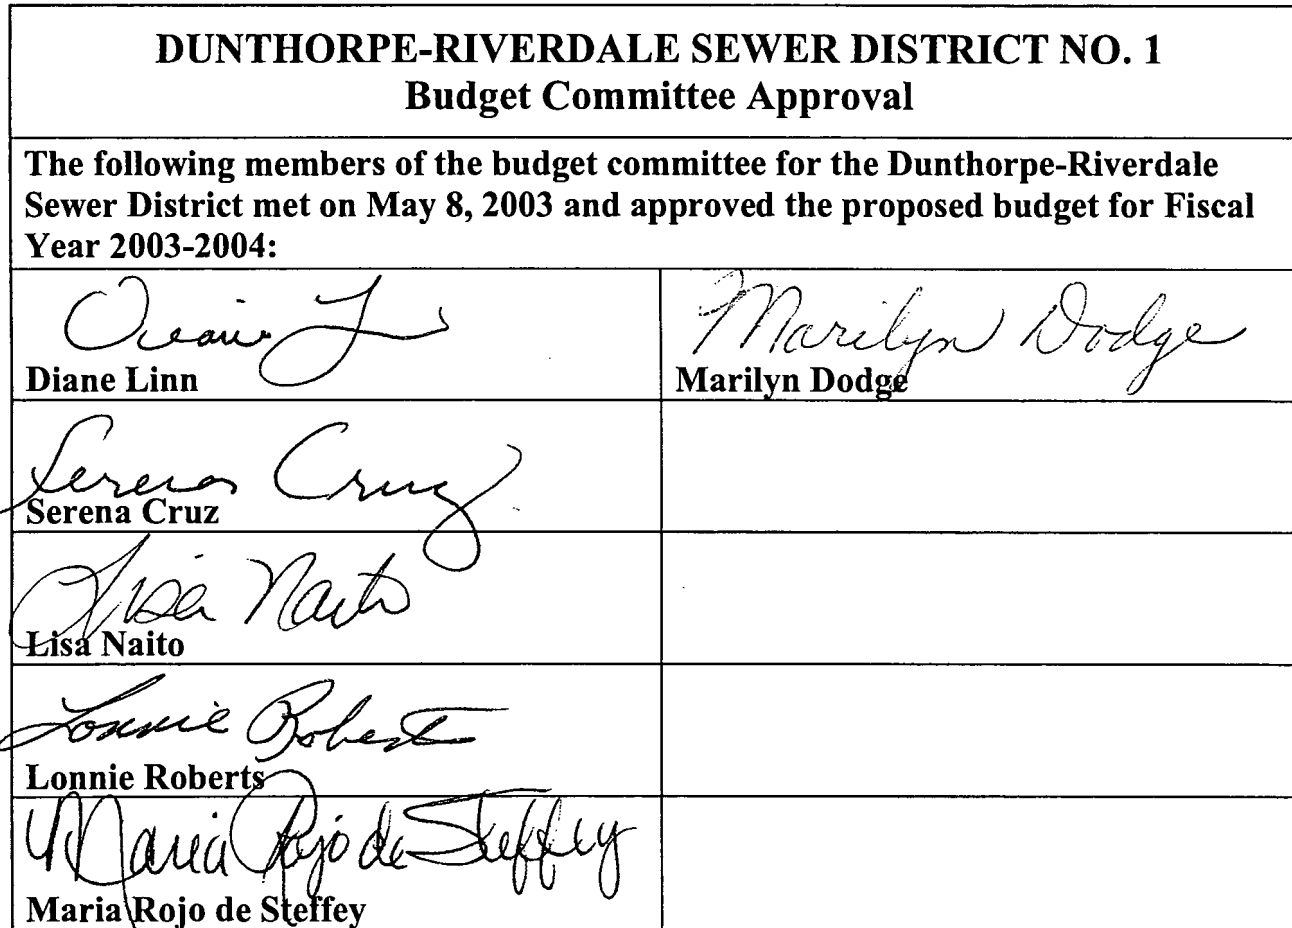 DUNTHORPE-RIVERDALE SEWER DISTRICT NO. 1
Budget Committee Approval
The following members of the budget committee for the Dunthorpe-Riverdale
Sewer District met on May 8, 2003 and approved the proposed budget for Fiscal
Year 2003-2004:
Diane L
Diane Linn
Marilyn Dodge
Marilyn Dodge
Serena Cruz
Serena Cruz
Lisa Naito
Lisa Naito
Lonnie Roberts
Lonnie Roberts
Maria Rojo de Steffey
Maria Rojo de Steffey